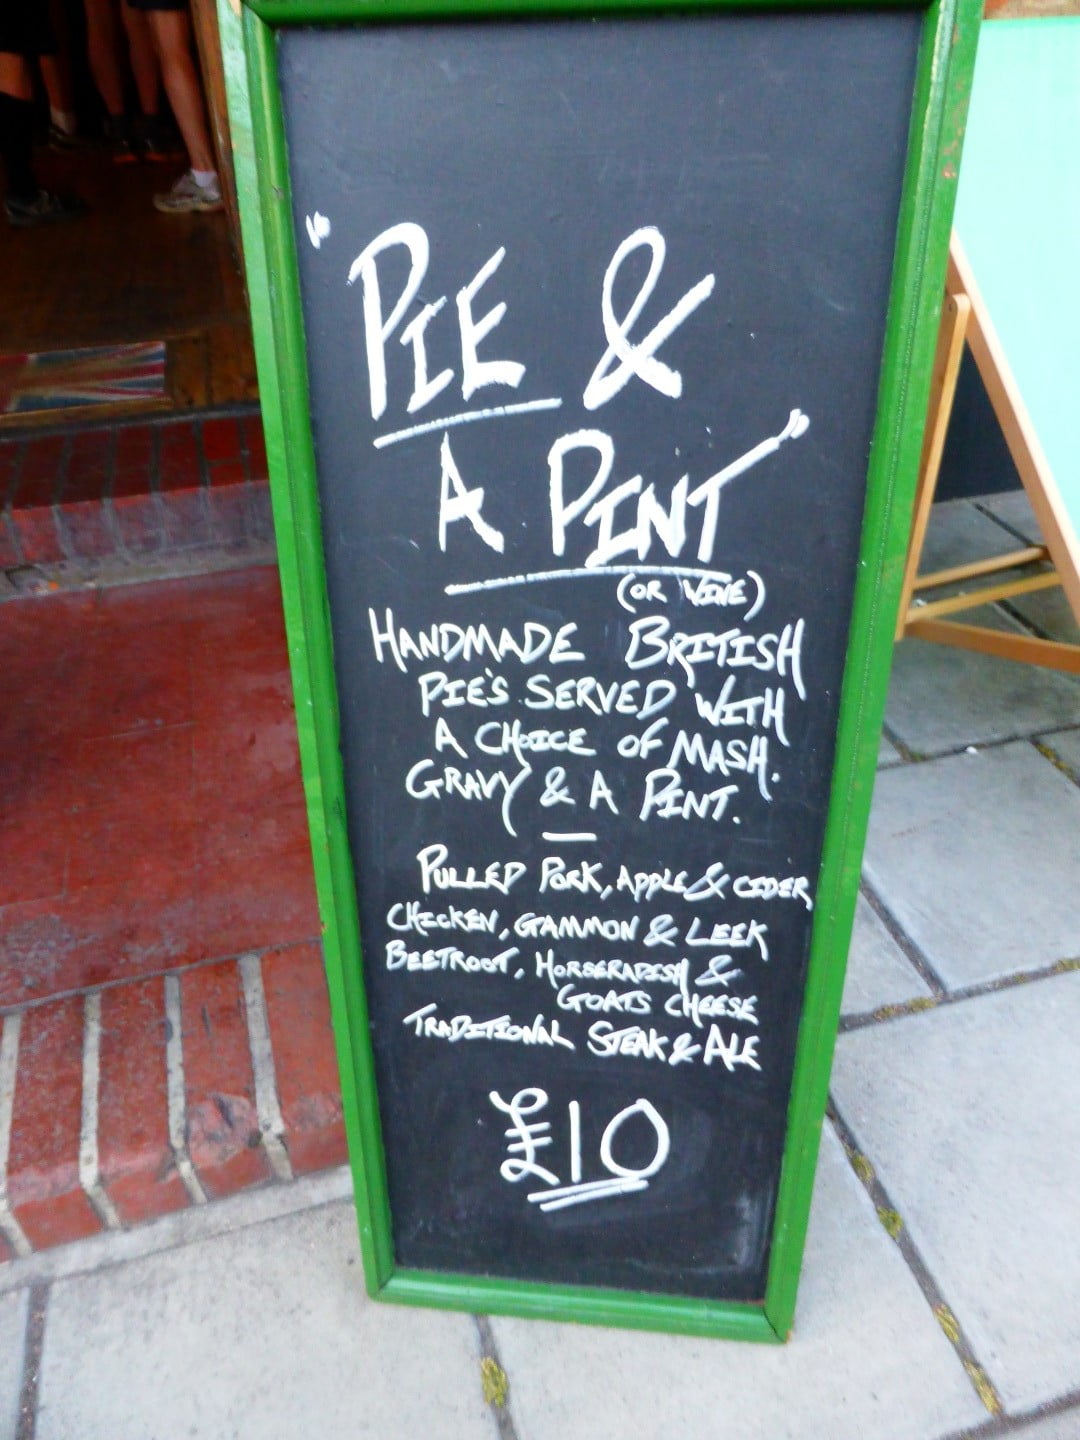 "PIE &
A PINT"
(OR WINE)
HANDMADE BRITISH
PIE'S SERVED WITH
A CHOICE OF MASH.
GRAVY & A PINT.
—
PULLED PORK, APPLE & CIDER
CHICKEN, GAMMON & LEEK
BEETROOT, HORSERADISH &
GOATS CHEESE
TRADITIONAL STEAK & ALE
£10